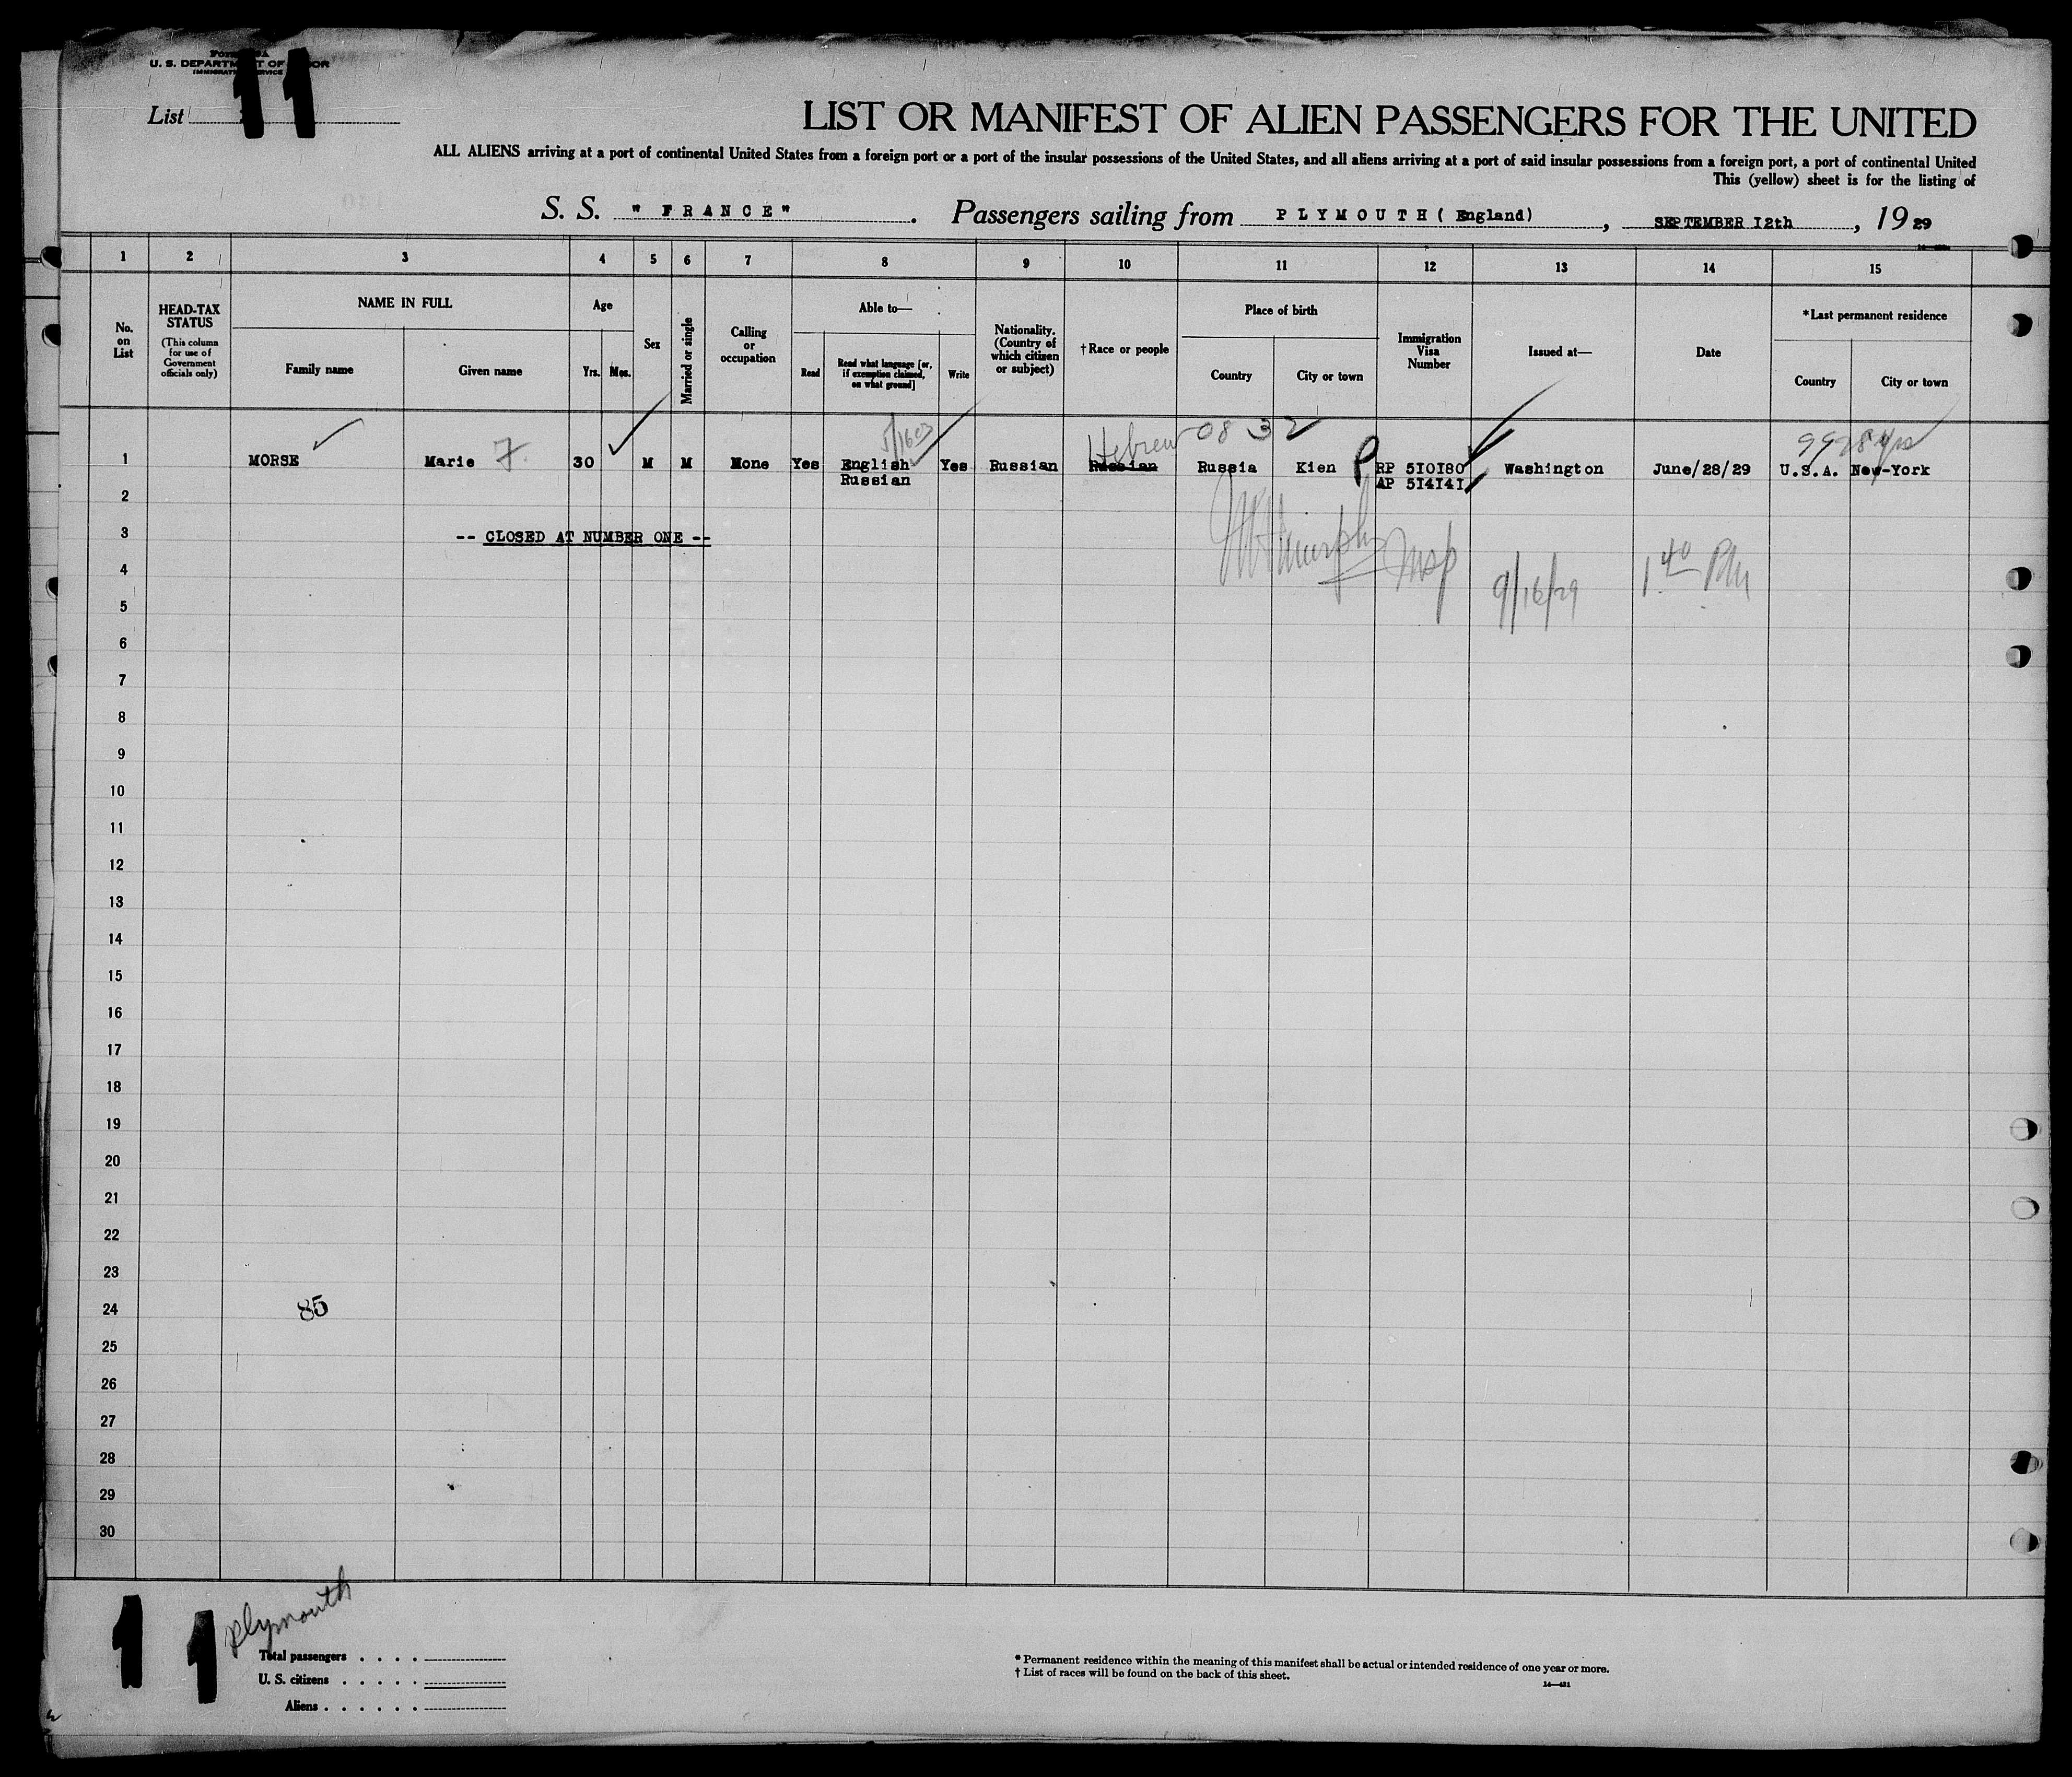 U. S. DEPARTMENT OF LABOR
IMMIGRATION SERVICE
List 11
LIST OR MANIFEST OF ALIEN PASSENGERS FOR THE UNITED
ALL ALIENS arriving at a port of continental United States from a foreign port or a port of the insular possessions of the United States, and all aliens arriving at a port of said insular possessions from a foreign port, a port of continental United
This (yellow) sheet is for the listing of
S. S. "FRANCE". Passengers sailing from PLYMOUTH (England), SEPTEMBER I2th, 1929
1 2 3 4 5 6 7 8 9 10 11 12 13 14 15
No. on List
HEAD-TAX STATUS
(This column for use of Government officials only)
NAME IN FULL
Family name Given name
Age
Yrs. Mos.
Sex
Married or single
Calling or occupation
Able to—
Read Read what language [or, if exemption claimed, on what ground] Write
Nationality. (Country of which citizen or subject)
†Race or people
Place of birth
Country City or town
Immigration Visa Number
Issued at—
Date
*Last permanent residence
Country City or town
Hebrew 08 32
1 MORSE Marie 7. 30 M M None Yes English Yes Russian Russian Russia Kien P RP 5I0I80 Washington June/28/29 U.S.A. New-York
Russian AP 5I4I4I
2
3 -- CLOSED AT NUMBER ONE --
Murphy Insp 9/16/29 1 40 PM
4
5
6
7
8
9
10
11
12
13
14
15
16
17
18
19
20
21
22
23
24 85
25
26
27
28
29
30
1 1 Plymouth
Total passengers . . . .
U. S. citizens . . . . .
Aliens . . . . . .
* Permanent residence within the meaning of this manifest shall be actual or intended residence of one year or more.
† List of races will be found on the back of this sheet.